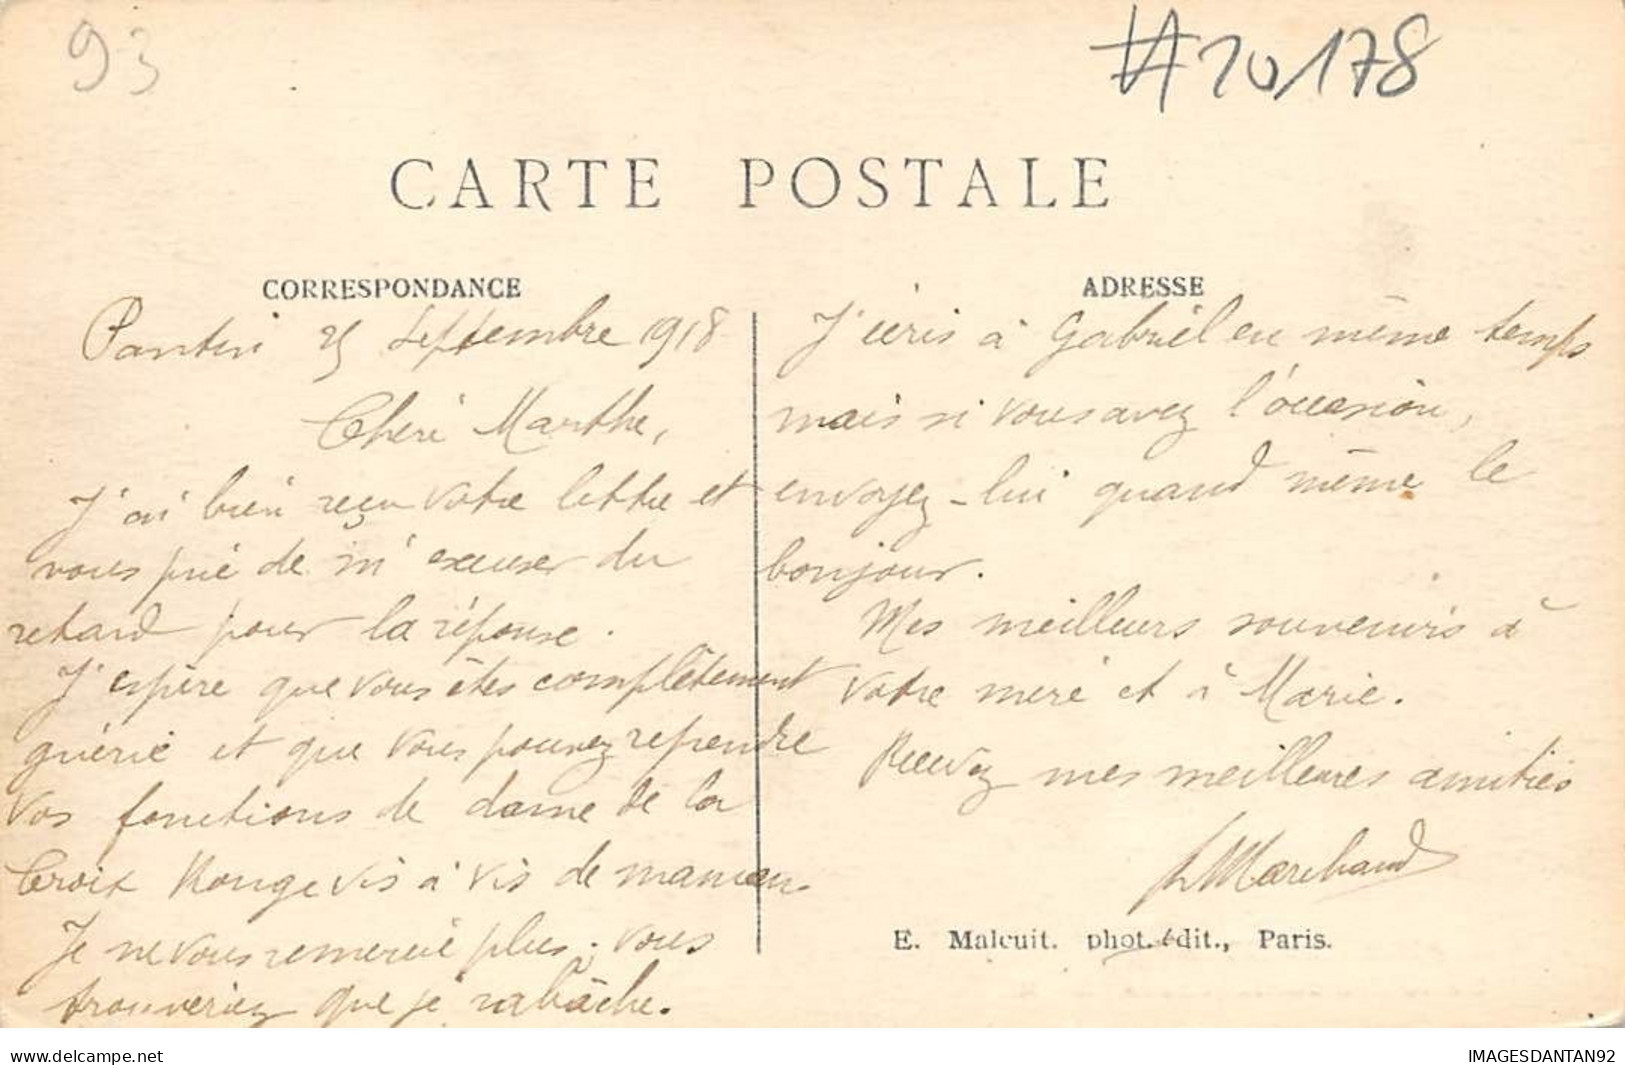 93
#20178
CARTE POSTALE
CORRESPONDANCE
Pantin 25 Septembre 1918
Chère Marthe,
J'ai bien reçu votre lettre et
vous prie de m'excuser du
retard pour la réponse.
J'espère que vous êtes complètement
guérie et que vous pouvez reprendre
vos fonctions de dame de la
Croix Rouge vis à vis de maman.
Je ne vous remercie plus, vous
trouveriez que je rabâche.
ADRESSE
J'écris à Gabriel en même temps
mais si vous avez l'occasion,
envoyez-lui quand même le
bonjour.
Mes meilleurs souvenirs à
votre mère et à Marie.
Recevez mes meilleures amitiés
Marchand
E. Malcuit. phot. édit., Paris.
delcampe.net
IMAGESDANTAN92